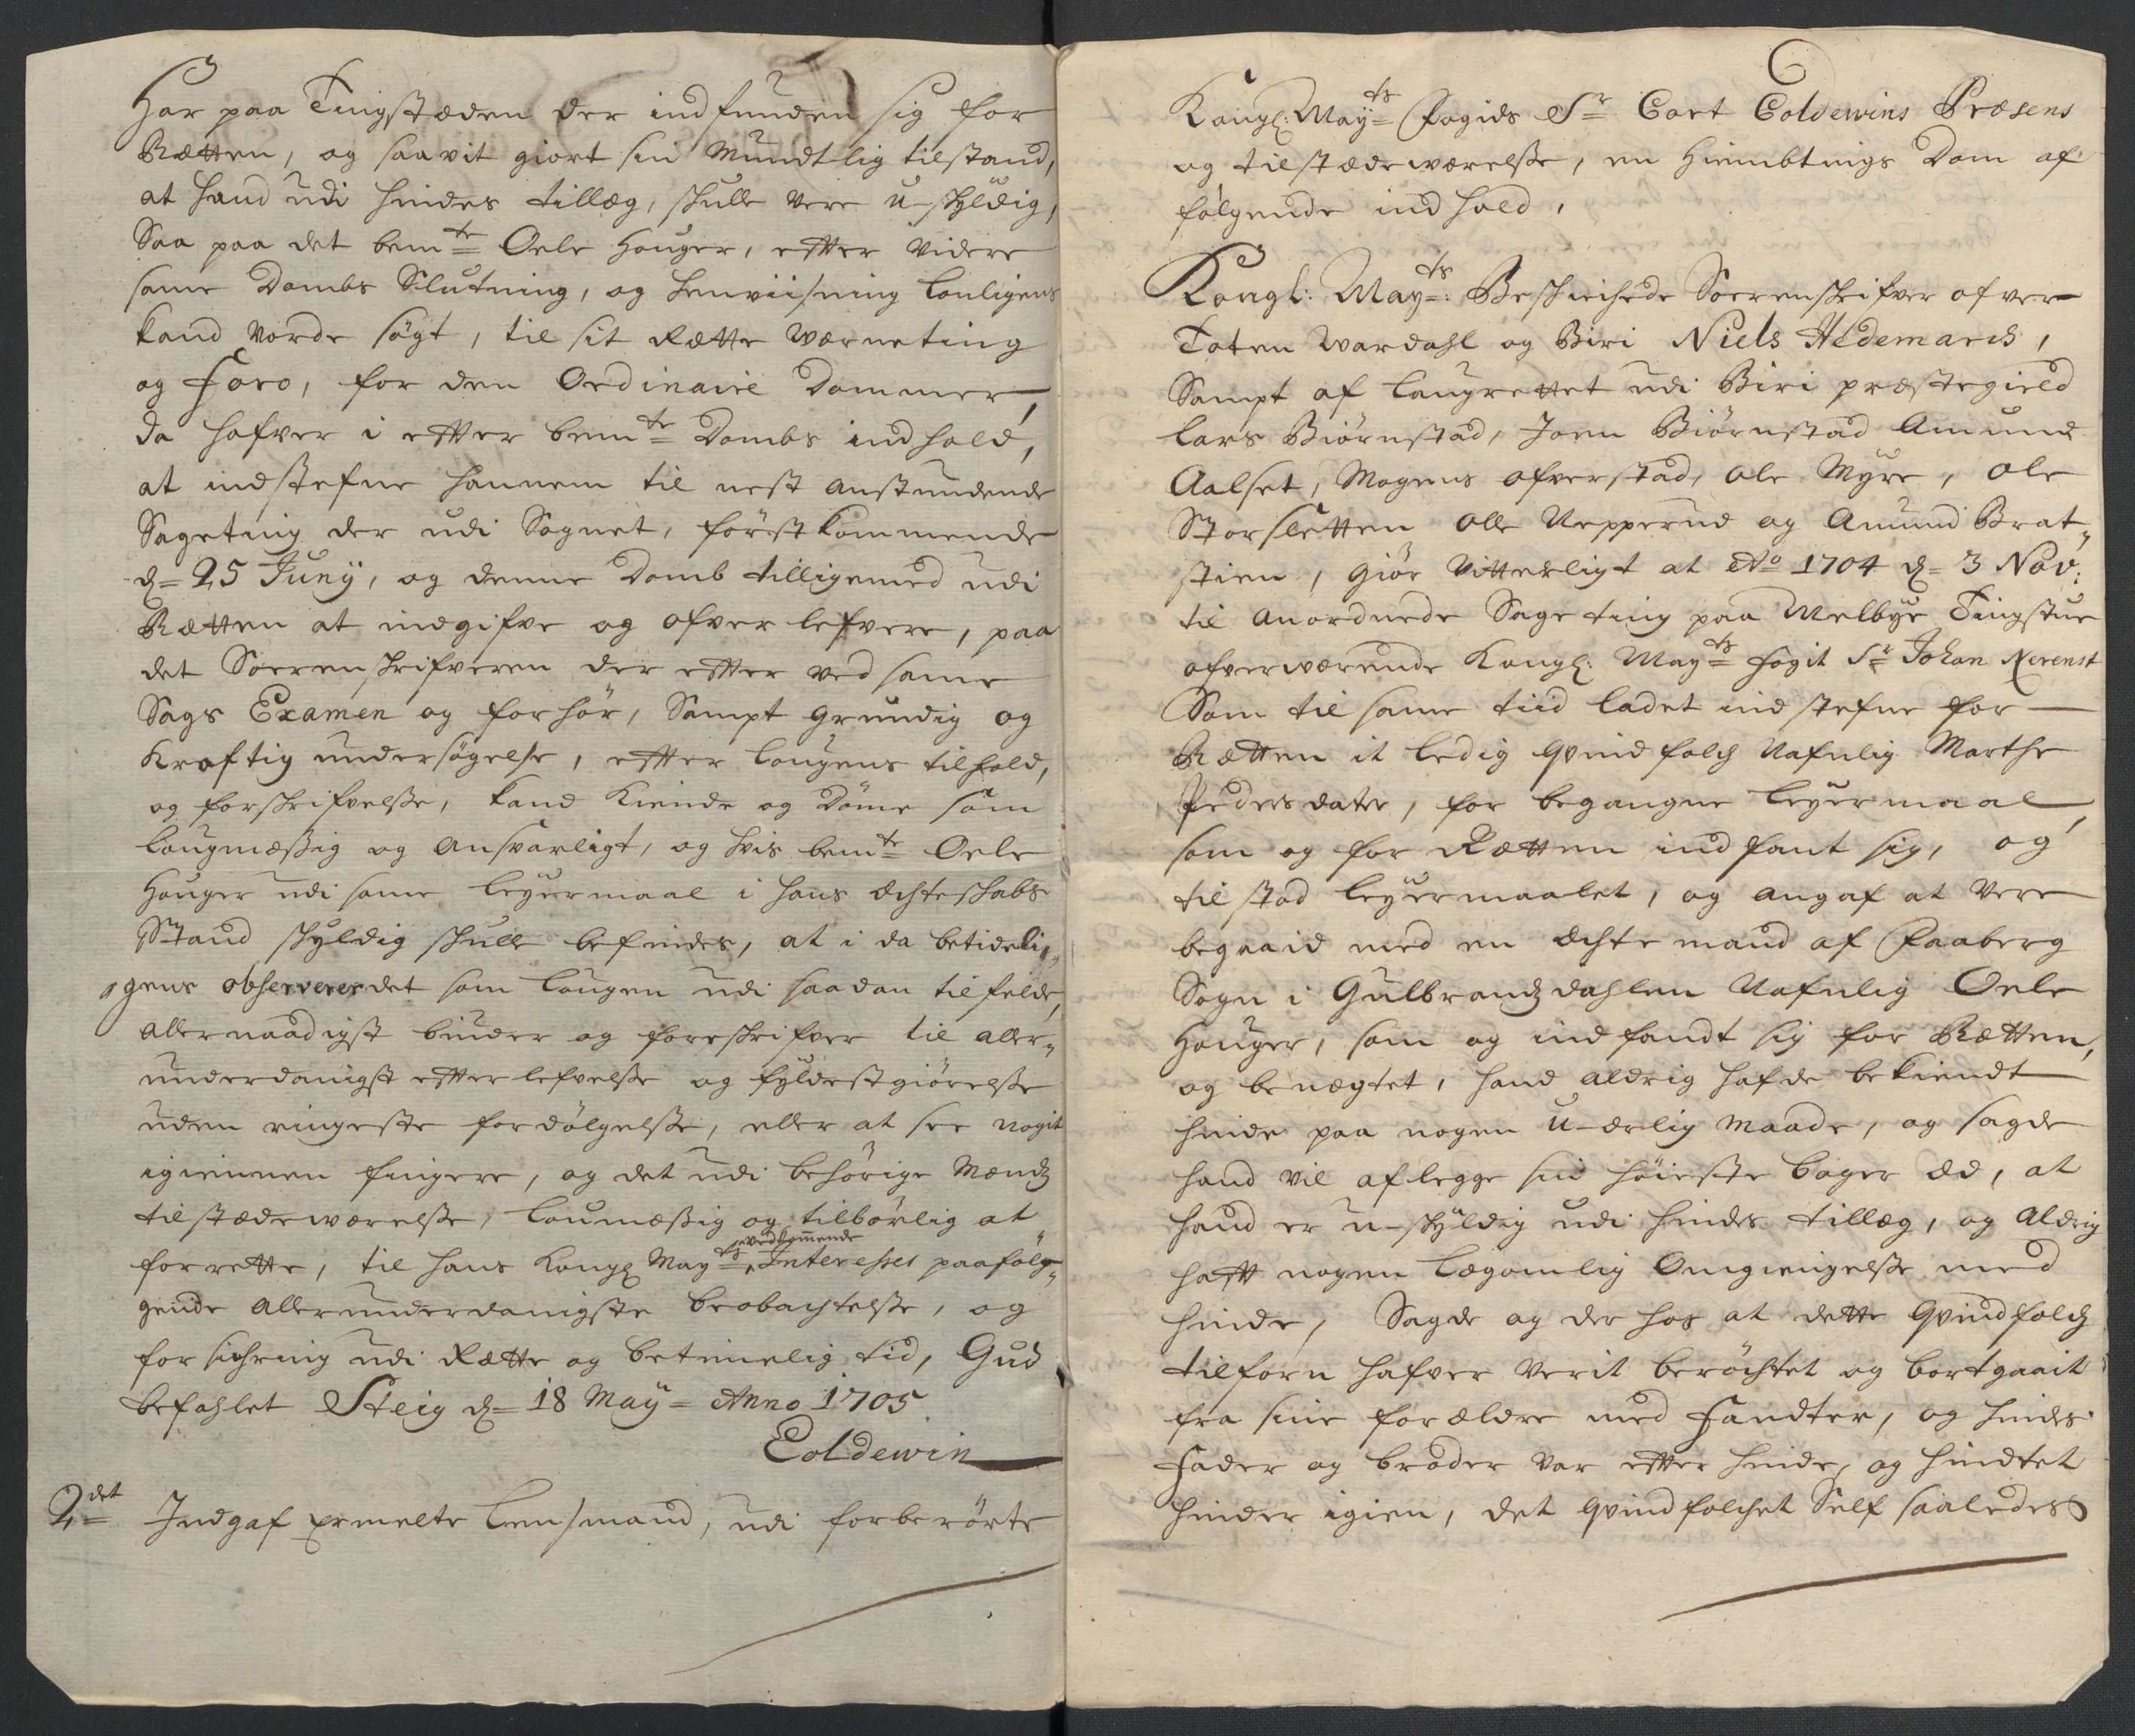 Har paa Tingstæden der indfunden sig for
Rætten, og saavit giort sin Mundtlig tilstand,
at hand udi hindes tillæg, skulle vere u-skyldig,
Saa paa det bemte Oele Houger, efter videre
same Dombs Slutning, og henviisning louligens
kand vorde søgt, til sit Rætte Værneting
og Foro, for den Ordinaire Dommer,
da hafver i efter bemte Dombs indhold,
at indstefne hannem til nest anstundende
Sageting der udi Sognet, førstkommende
d= 25 Junij, og denne Domb tilligemed udi
Rætten at indgifve og ofverlefvere, paa
det Soerenskrifveren der efter ved same
Sags Examen og forhør, Sampt grundig og
Kraftig undersøgelse, efter lougens tilhold,
og forskrifvelse, kand kiende og døme som
lougmæssig og ansvarligt, og hvis bemte Oele
Houger udi same leyermaal i hans Echteskabs
Stand skyldig skulle befindes, at i da betideli„
„gens observerer det som lougen udi saadan tilfelde,
allernaadigst binder og foreskrifver til aller„
underdanigst efterlefvelse og fyldestgiørelse
uden ringeste fordølgelse, eller at see nogit
igiennen fingere, og det udi behørige Mændz
tilstædeværelse, loumæssig og tilbørlig at
forrette, til hans Kongl Mayts vedkomende Interesses paafølg„
gende allerunderdanigste beobachtelse, og
forsichring udi Rætte og betimelig tid, Gud
befahlet Steig d= 18 Maij= Anno 1705
Coldewin
2det Indgaf Ermelte Lensmand, udi forberørte
Kongl: Mayts Fogids Sr Cort Coldewins Præsens
og tilstædeværelse, en Hiembtings Dom af
følgende indhold,
Kongl: Mayts: Beskichede Soerenskrifver ofver
Toten Wardahl og Biri Niels Hedemarck,
Sampt af laugrettet udi Biri præstegield
Lars Biørnstad, Joen Biørnstad Amund
Aalset, Mogens ofverstad, Ole Myre, Ole
Storsletten Olle Nepperud og Amund Brat„
stien, Giør Vitterligt at Ao 1704 d= 3 Nov:
til anordnede Sageting paa Melbye Tingstue
ofverværende Kongl: Mayts fogit Sr Johan Rerenst
Som til same tiid ladet indstefne for
Rætten it ledig quindfolch Nafnlig Marthe
Pedersdater, for begangne leyermaal,
som og for Rætten indfant sig, og
tilstod leyermaalet, og angaf at vere
begaaid med en Echte mand af Faaberg
Sogn i Gulbrandzdahlen Nafnlig Oele
Houger, som og indfandt sig for Rætten,
og benegtet, hand aldrig hafde bekiendt
hinde paa nogen u-ærlig maade, og sagde
hand vil aflegge sin høieste boger Ed, at
hand er u-skyldig udi hindes tillæg, og aldrig
haft nogen legomlig Omgiengelse med
hinde, Sagde og der hos at dette quindfolch
tilforn hafver verit berøchtet og bortgaait
fra sine forældre med Fandter, og hindes
Fader og broder var efter hinde, og hindtet
hinder igien, det quindfolchet Self saaledes